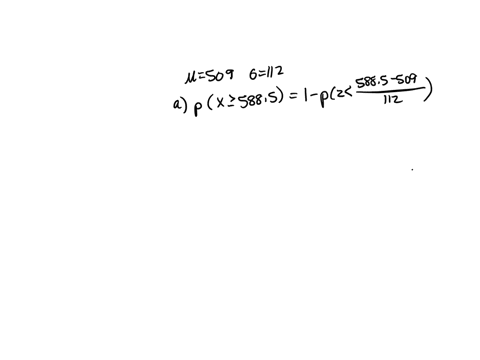 μ=509 σ=112
a) p(x≥588.5) = 1-p(z< (588.5-509)/112)